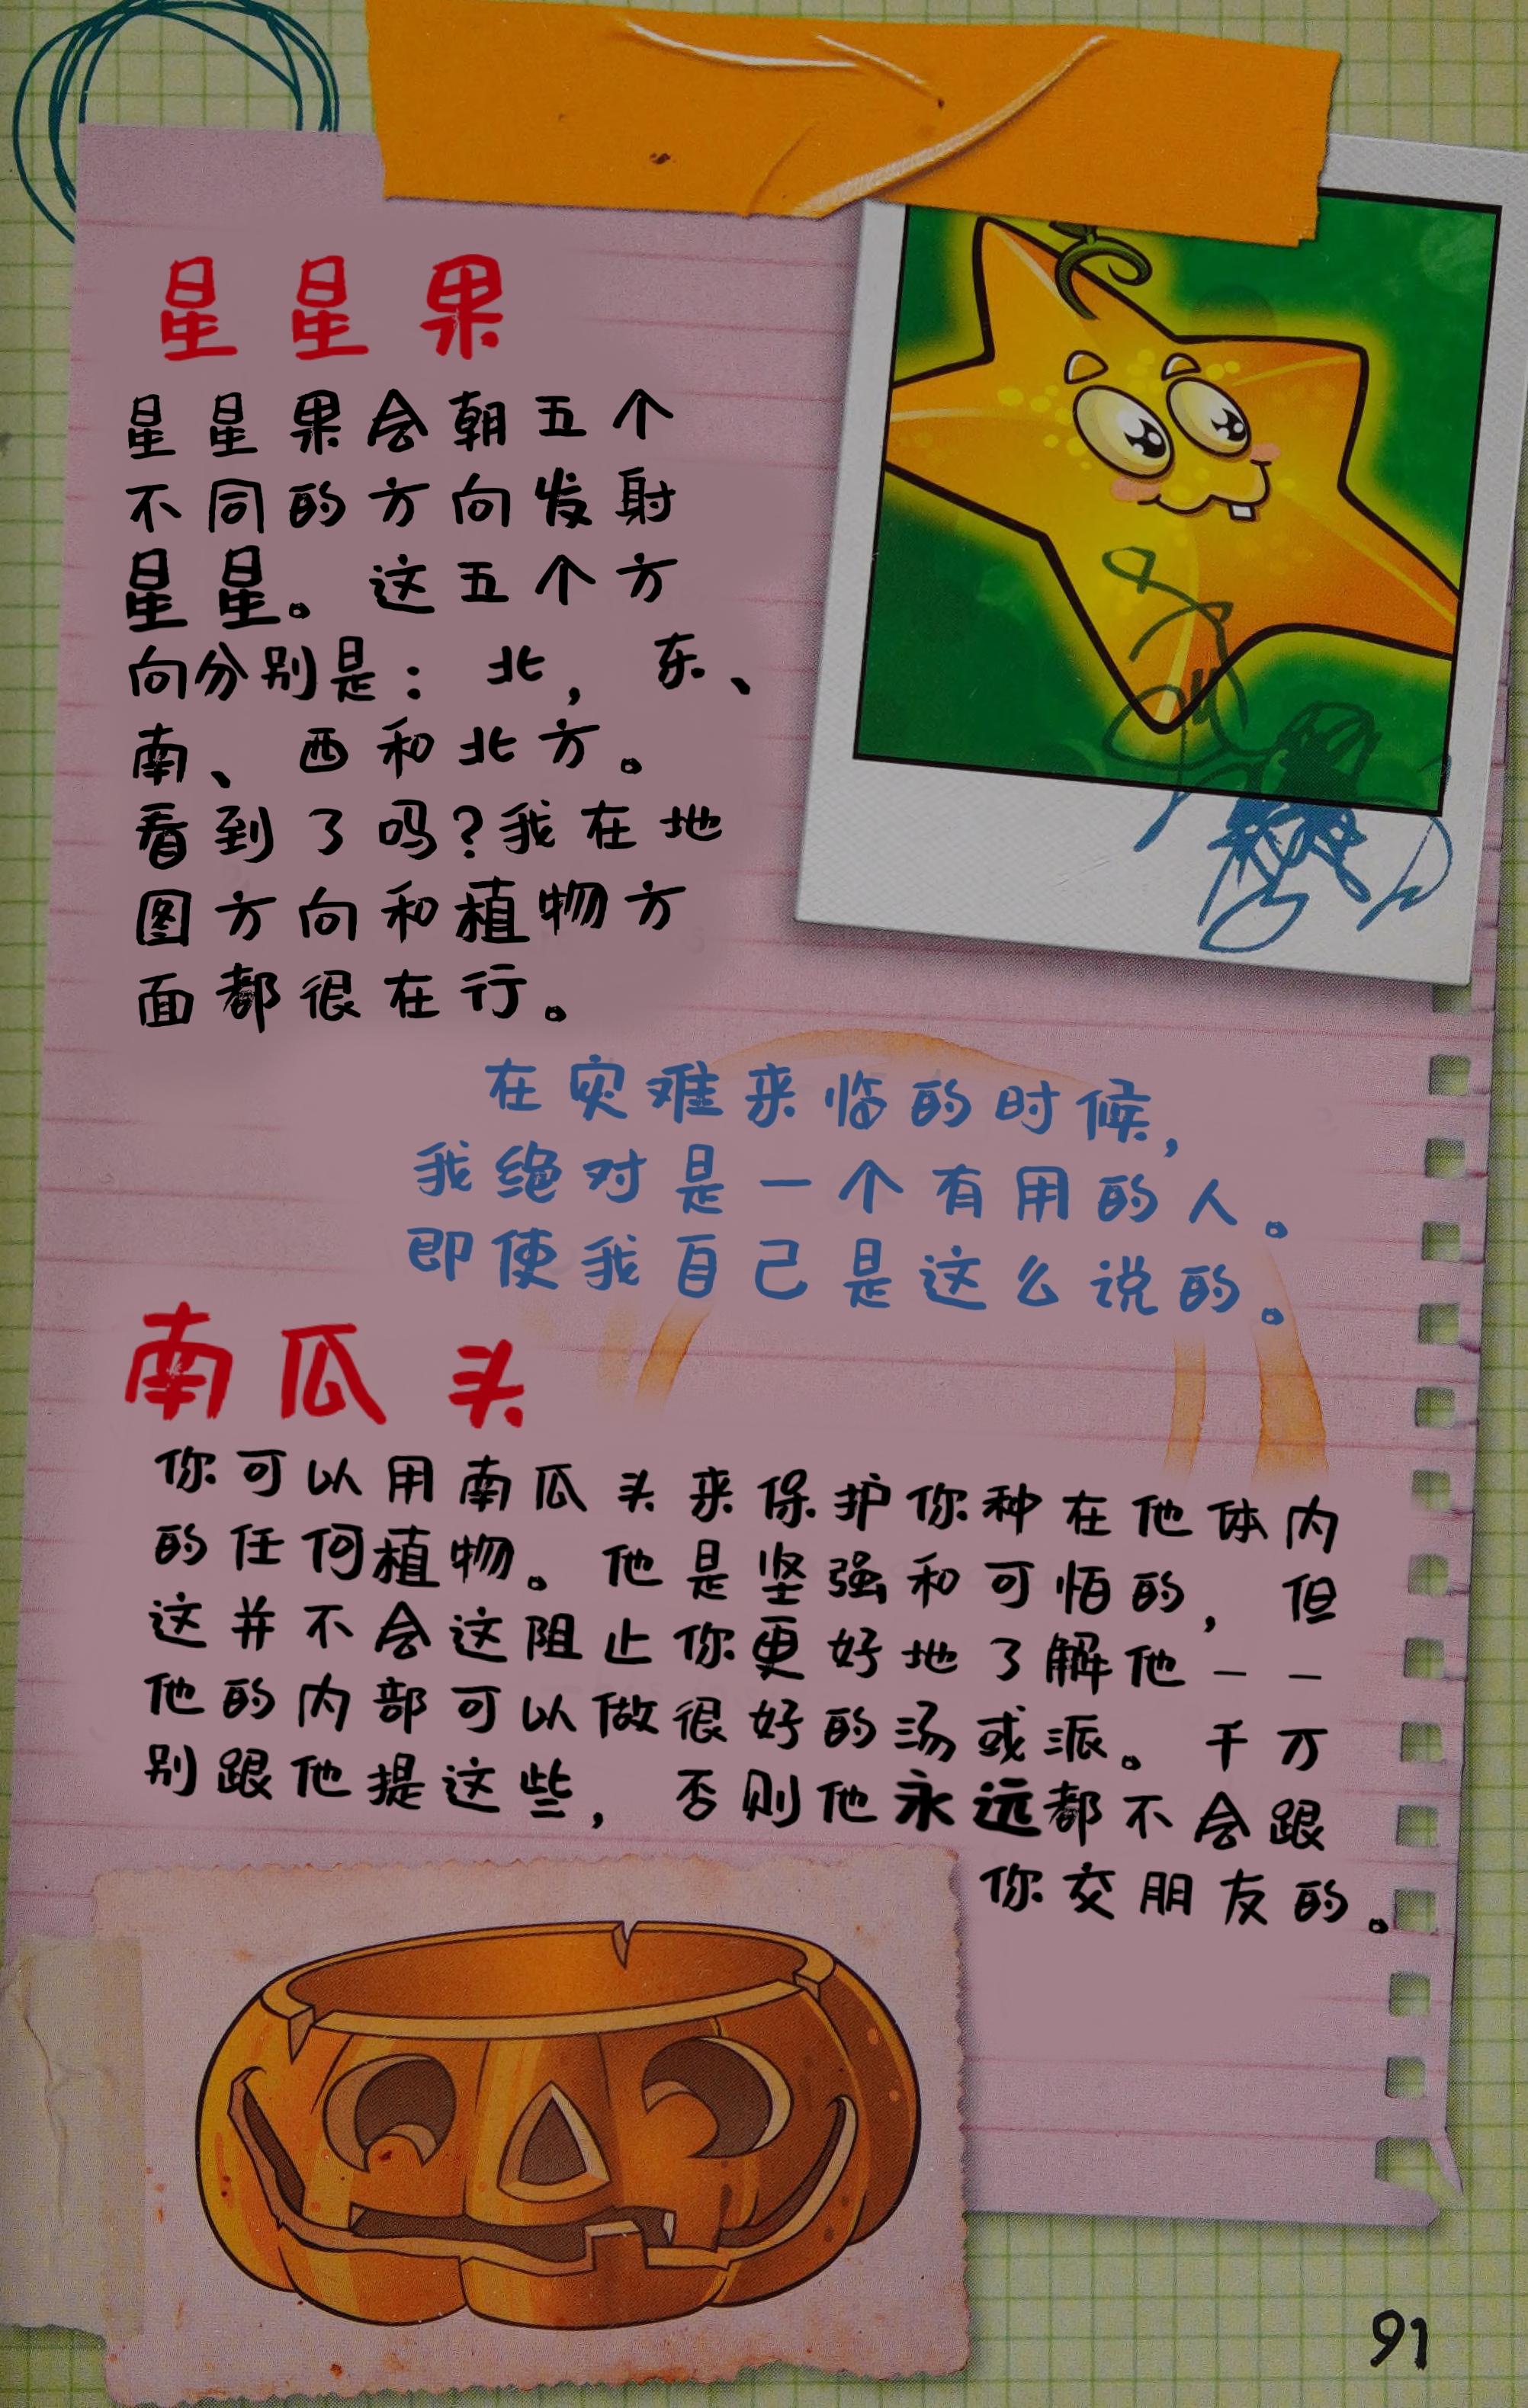 星星果
星星果会朝五个
不同的方向发射
星星。这五个方
向分别是：北，东、
南、西和北方。
看到了吗?我在地
图方向和植物方
面都很在行。
在灾难来临的时候，
我绝对是一个有用的人。
即使我自己是这么说的。
南瓜头
你可以用南瓜头来保护你种在他体内
的任何植物。他是坚强和可怕的，但
这并不会这阻止你更好地了解他——
他的内部可以做很好的汤或派。千万
别跟他提这些，否则他永远都不会跟
你交朋友的。
91